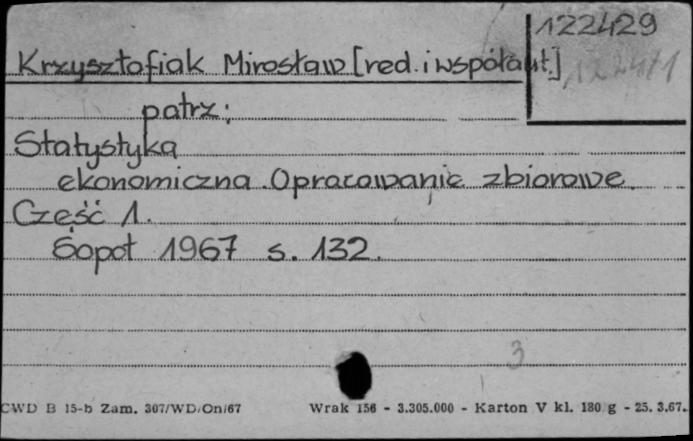 122429
Krzysztofiak Mirosław [red. i współaut.]
122411
patrz:
Statystyka
ekonomiczna. Opracowanie zbiorowe.
Cześć 1.
Sopot 1967 s. 132.
3
CWD B 15-b Zam. 307/WD/On/67 Wrak 156 - 3.305.000 - Karton V kl. 180 g - 25. 3.67.